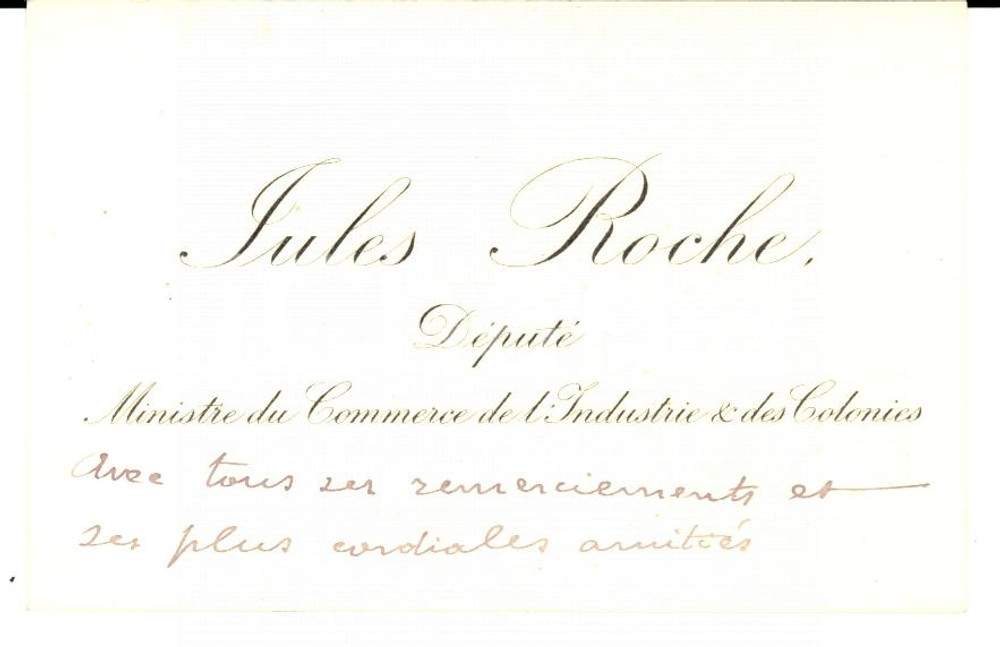 Jules Roche,
Député
Ministre du Commerce de l'Industrie & des Colonies
Avec tous ses remerciements et
ses plus cordiales amitiés